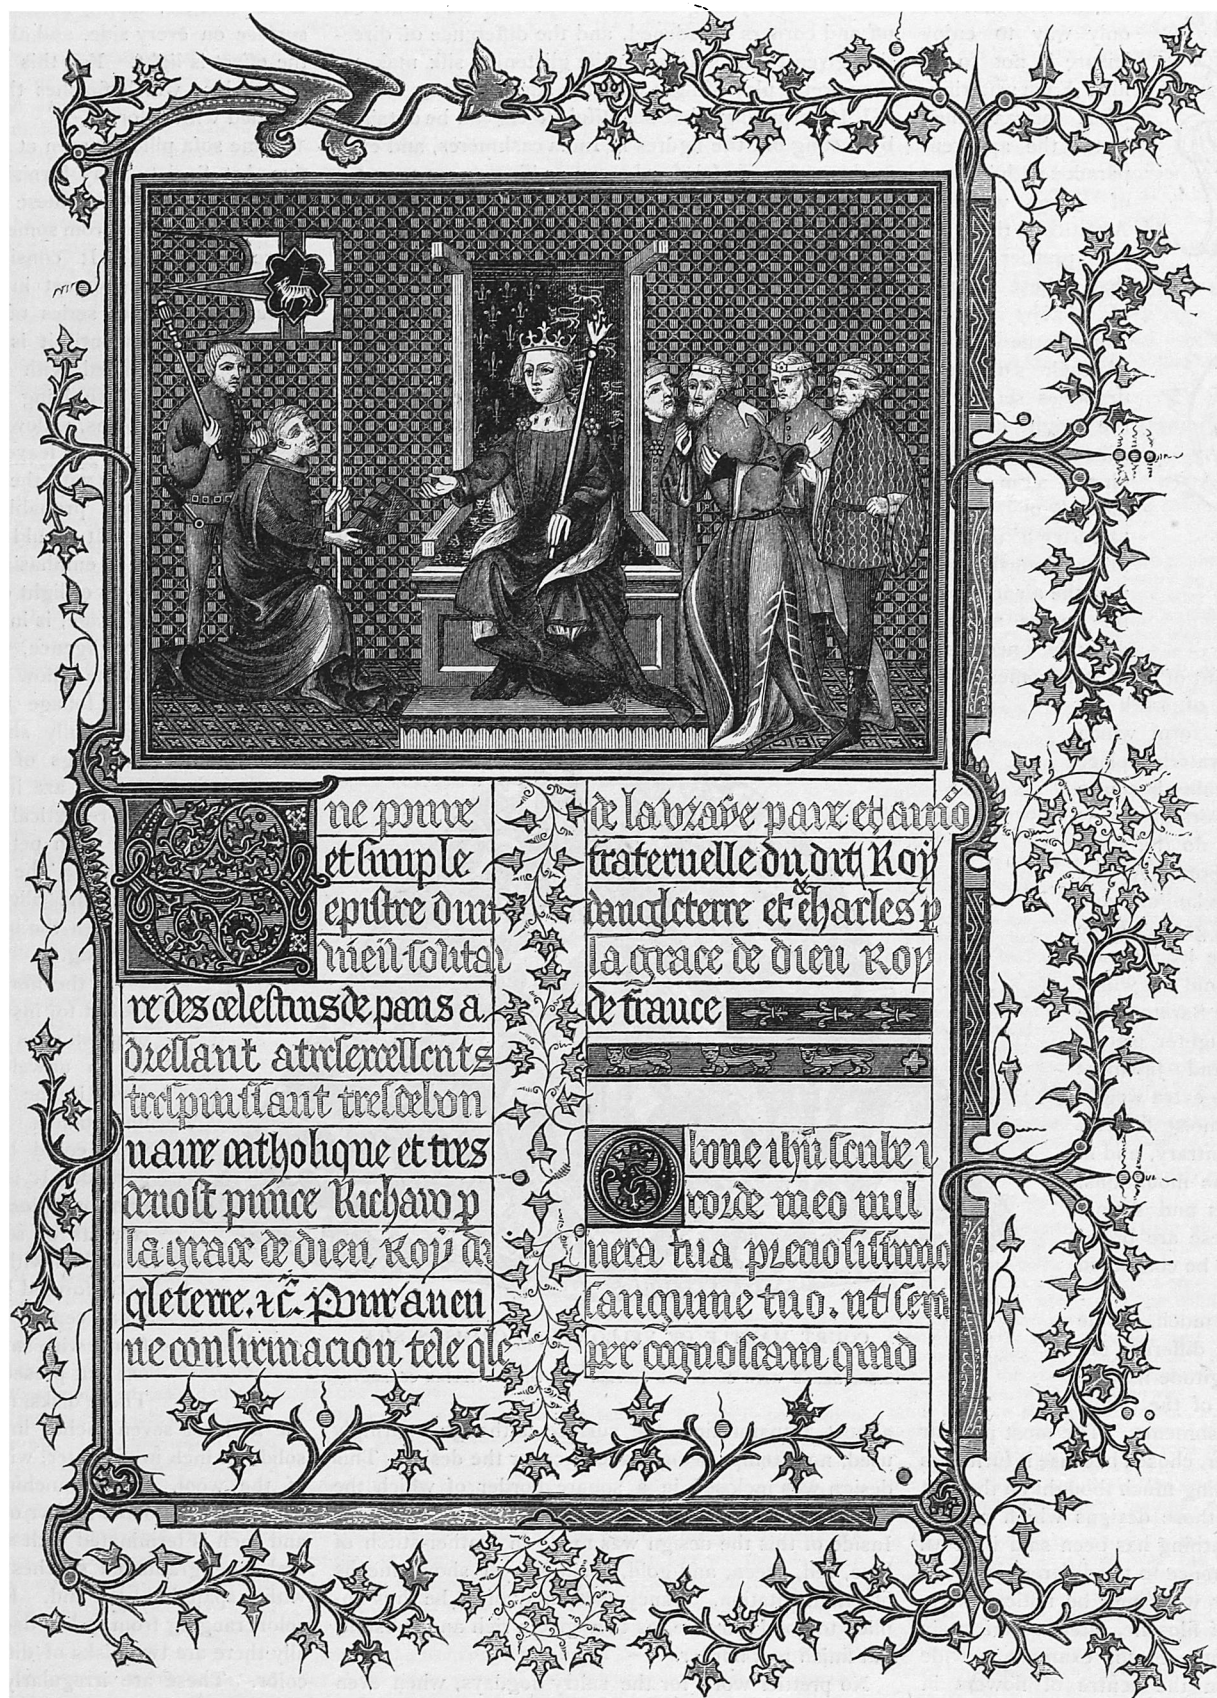 ne povre
et simple
epistre dun
vieil solitai
re des celestins de paris a
dressant a tresexcellent &
trespuissant tresdebon
naire catholique et tres
devost prince Richard p
la grace de dieu Roy da
gleterre. &c. Pour aucu
ne confirmacion tele qle
de la vraye paix et amo
fraternelle du dit Roy
dangleterre et & charles p
la grace de dieu Roy
de france
O bone ihu scribe i
corde meo vul
nera tua preciosissimo
sanguine tuo. ut sem
per cognoscam quid